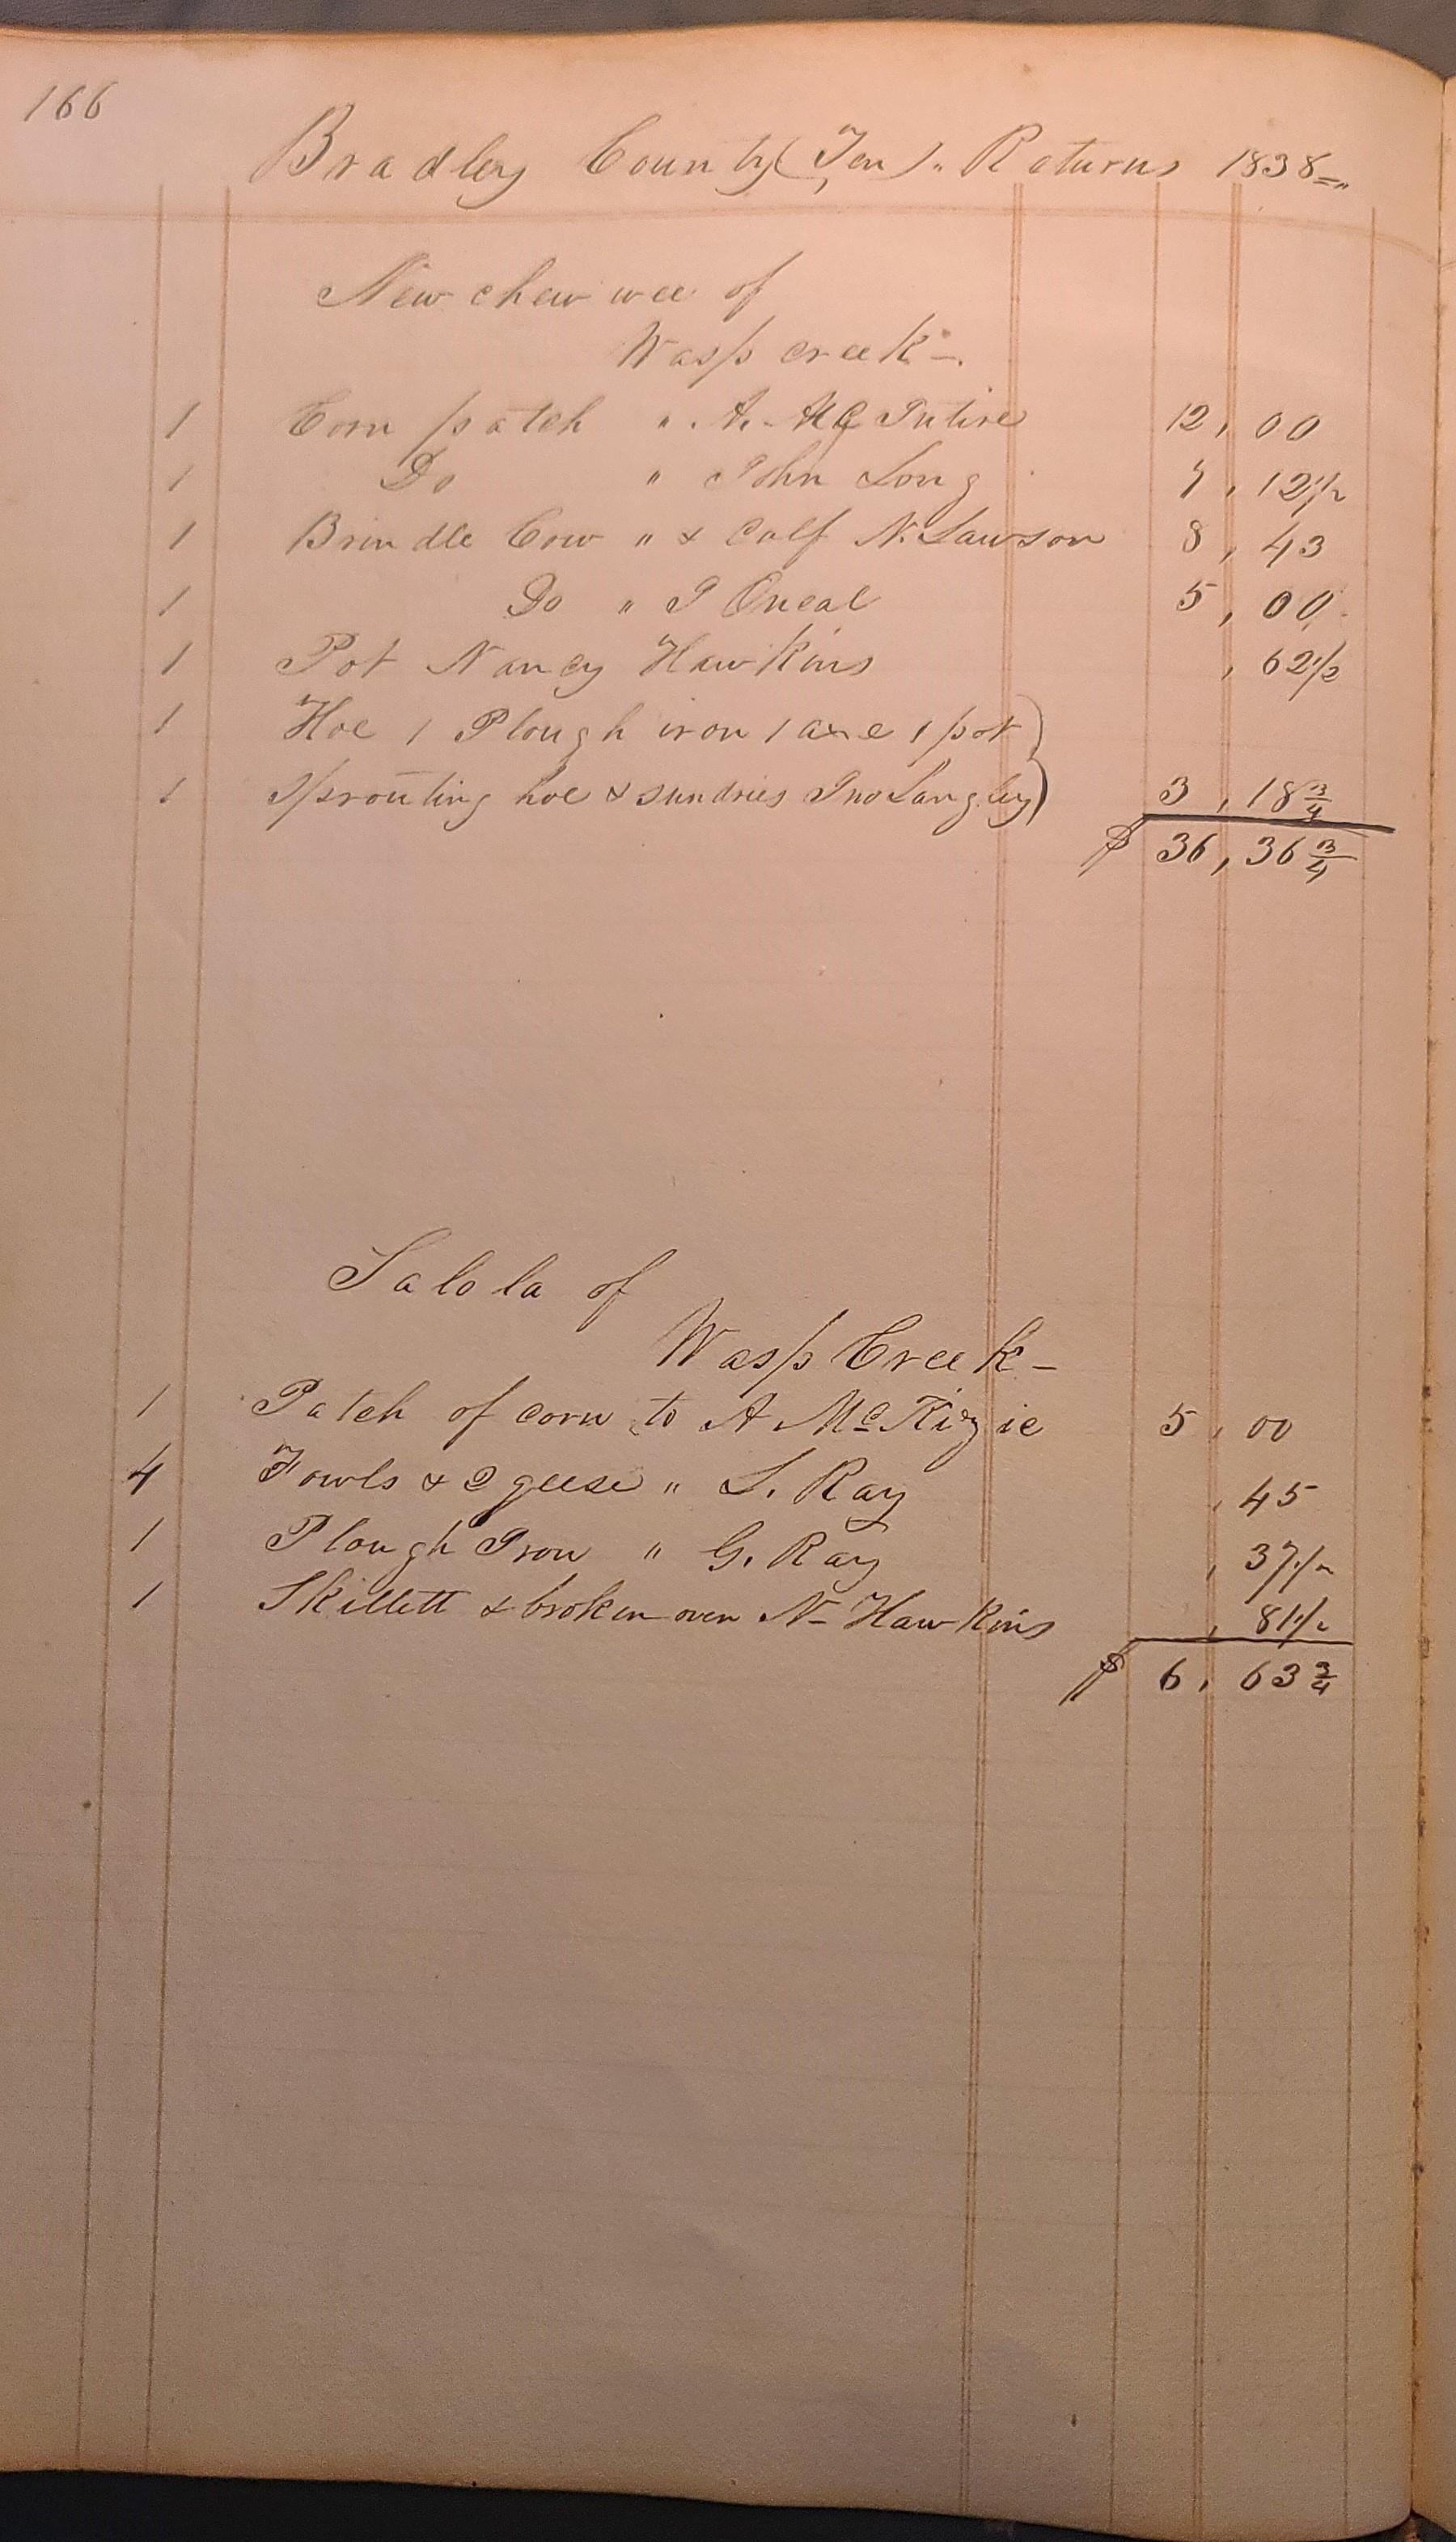 166
Bradley County (Ten) " Returns 1838 = "
New chew wee of
Wasp creek -
1 Corn patch " A. Mc Intire 12, 00
1 Do " John Long 7, 12 1/2
1 Brindle Cow " & Calf N. Lawson 8, 43
1 Do " J Oneal 5, 00
1 Pot Nancy Hawkins , 62 1/2
1 Hoe 1 Plough iron 1 axe 1 pot )
1 Sprouting hoe & sundries Jno Langley ) 3, 18 3/4
$ 36, 36 3/4
Salola of
Wasp Creek -
1 Patch of corn to A McKizie 5, 00
4 Fowls & 2 geese " S. Ray , 45
1 Plough Iron " G. Ray , 37 1/2
1 Skillett & broken oven N- Hawkins , 81 1/2
$ 6, 63 3/4